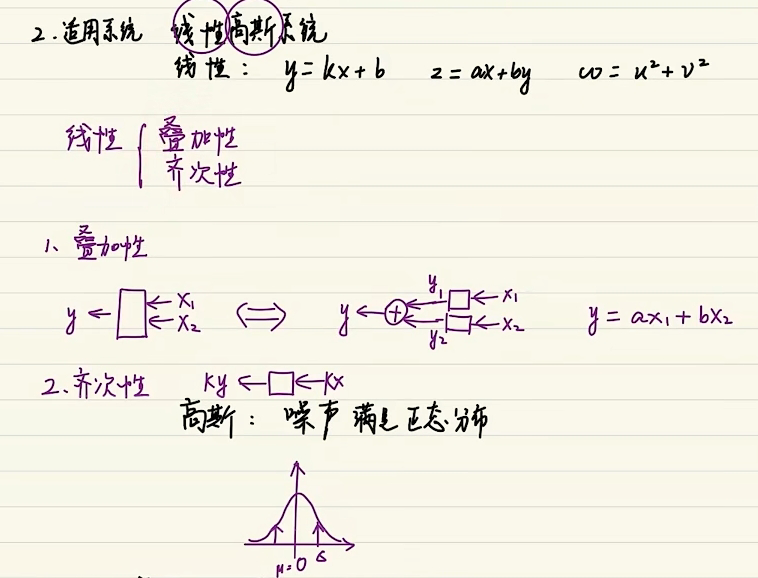 2.适用系统 线性高斯系统
线性: y=kx+b z=ax+by w=u²+v²
线性 { 叠加性
齐次性
1、叠加性
y ← ← x₁ ← x₂ ⇔ y ← + y₁ ← x₁ y₂ ← x₂ y=ax₁+bx₂
2.齐次性 ky ← ← kx
高斯: 噪声满足正态分布
μ=0 δ